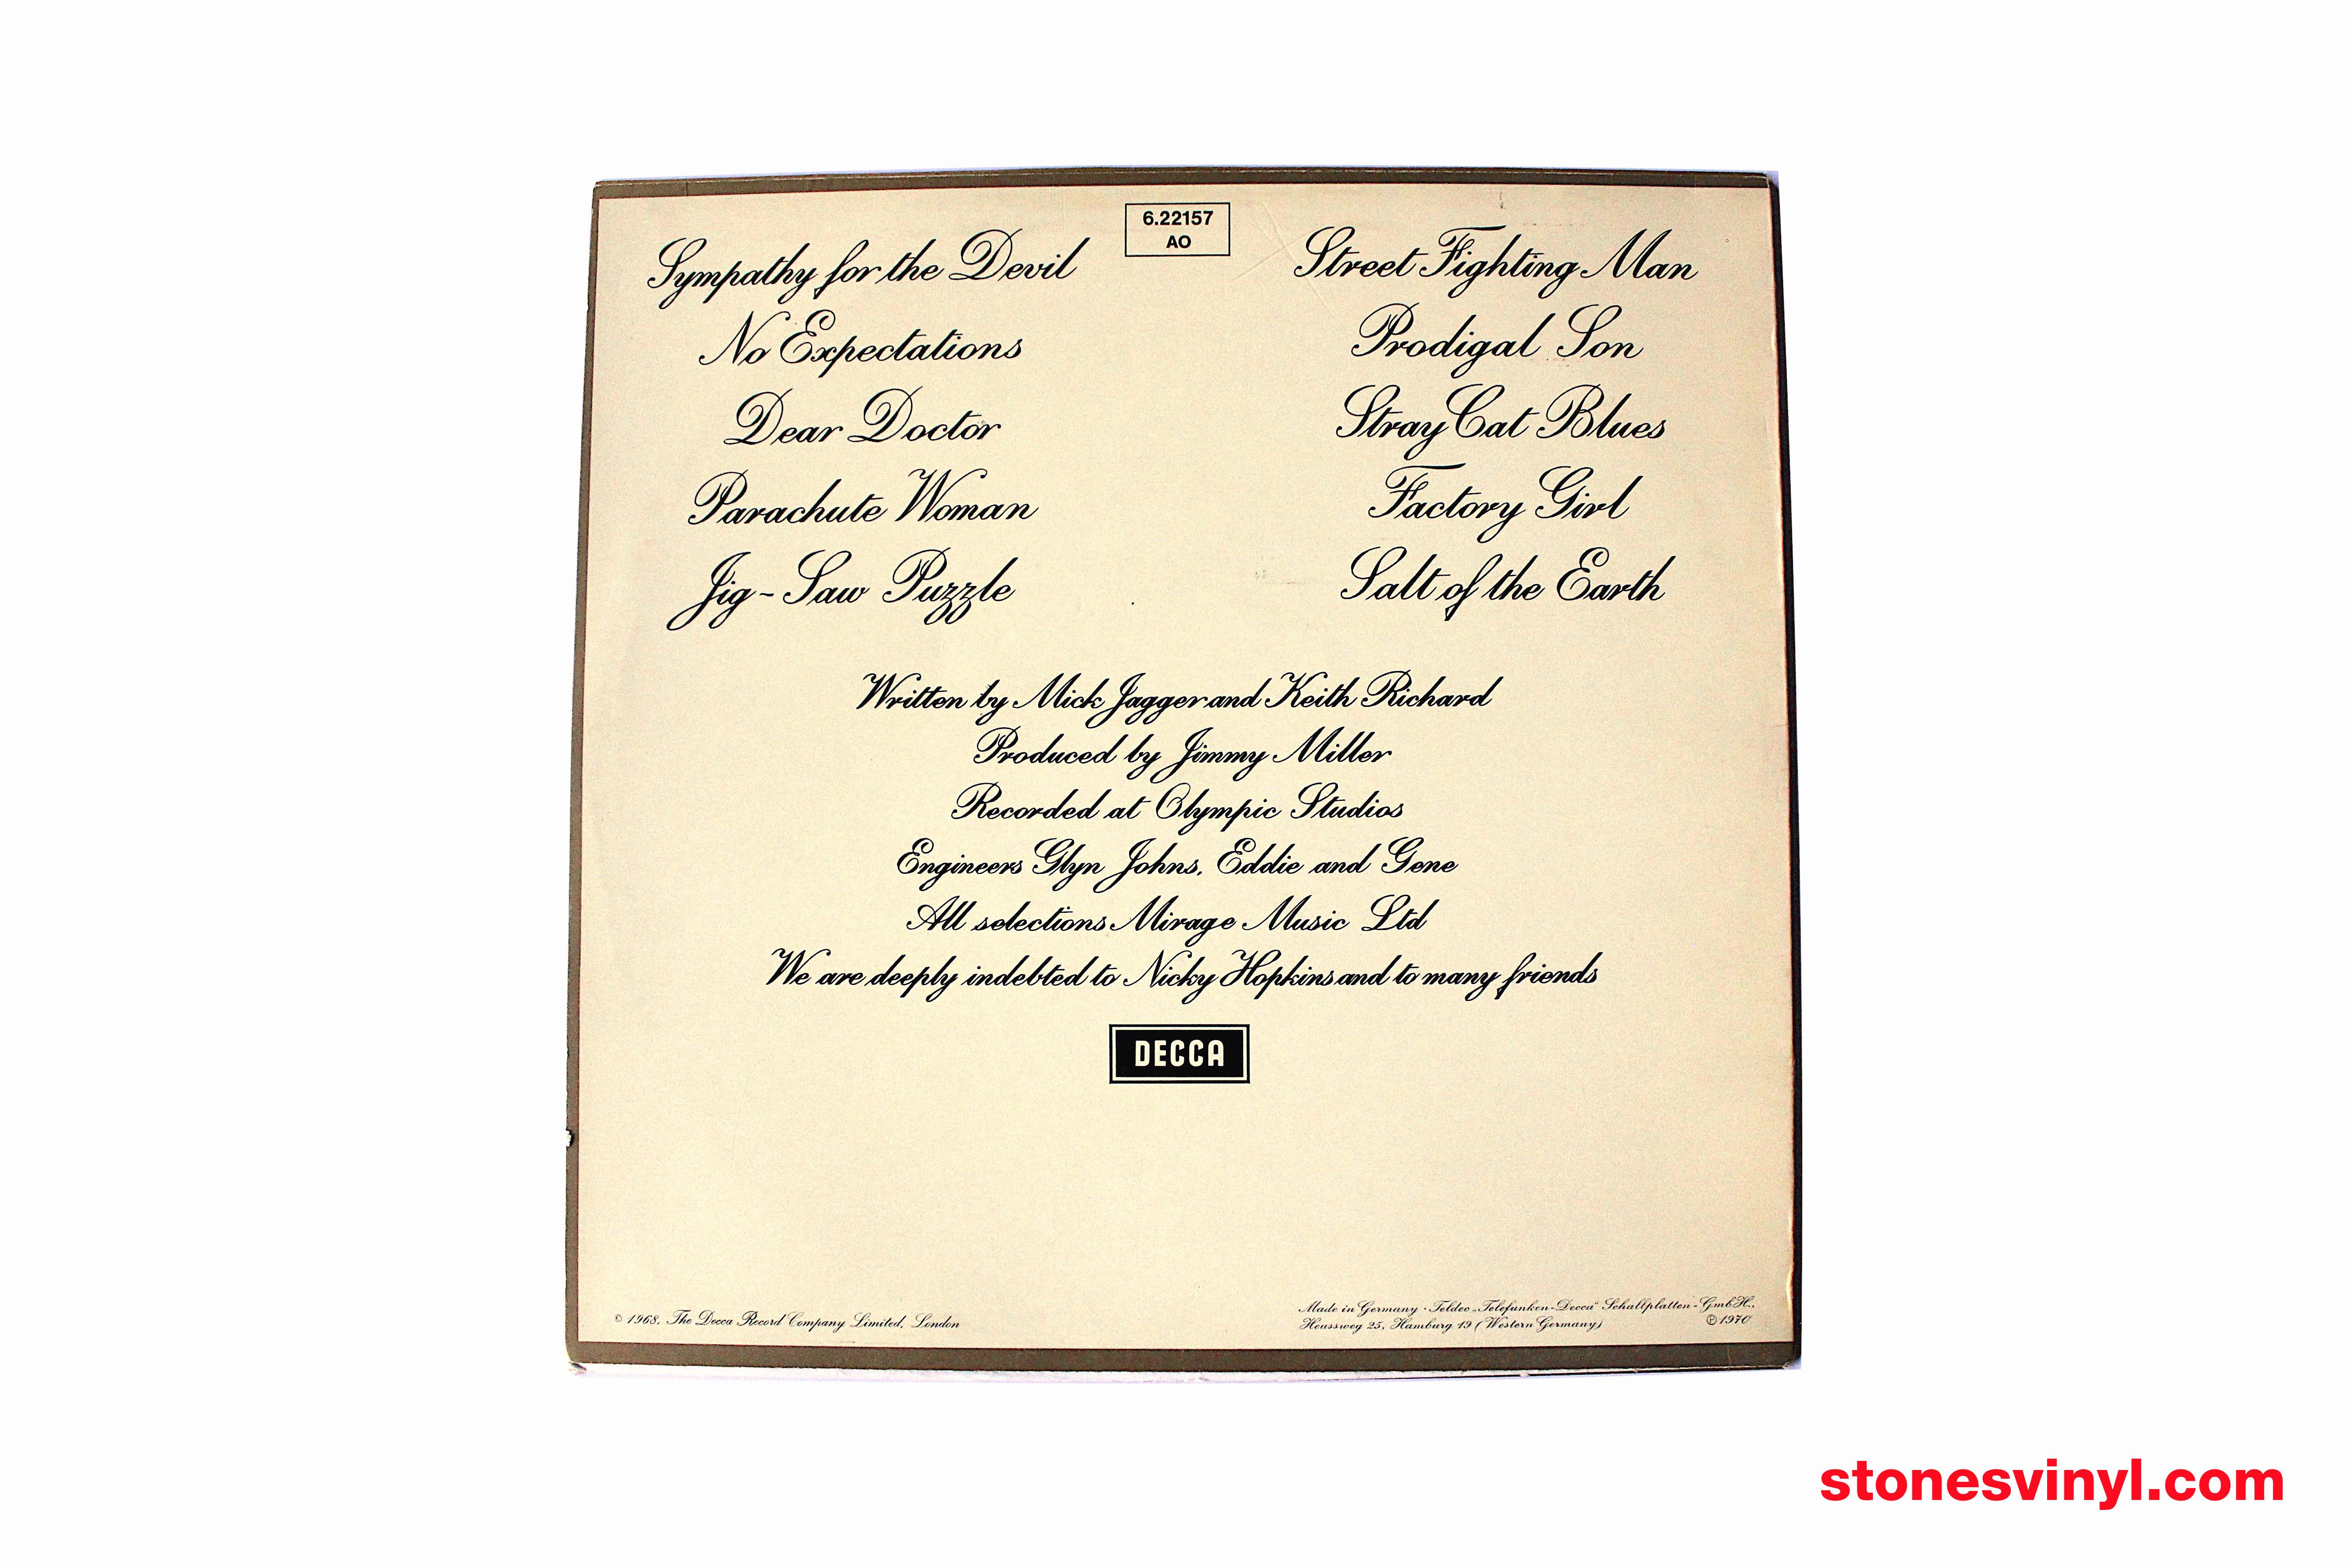 6.22157
AO
Sympathy for the Devil
No Expectations
Dear Doctor
Parachute Woman
Jig-Saw Puzzle
Street Fighting Man
Prodigal Son
Stray Cat Blues
Factory Girl
Salt of the Earth
Written by Mick Jagger and Keith Richard
Produced by Jimmy Miller
Recorded at Olympic Studios
Engineers Glyn Johns, Eddie and Gene
All selections Mirage Music Ltd
We are deeply indebted to Nicky Hopkins and to many friends
DECCA
© 1968, The Decca Record Company Limited, London
Made in Germany · Teldec „Telefunken-Decca" Schallplatten-GmbH.,
Heussweg 25, Hamburg 19 (Western Germany) ℗ 1970
stonesvinyl.com